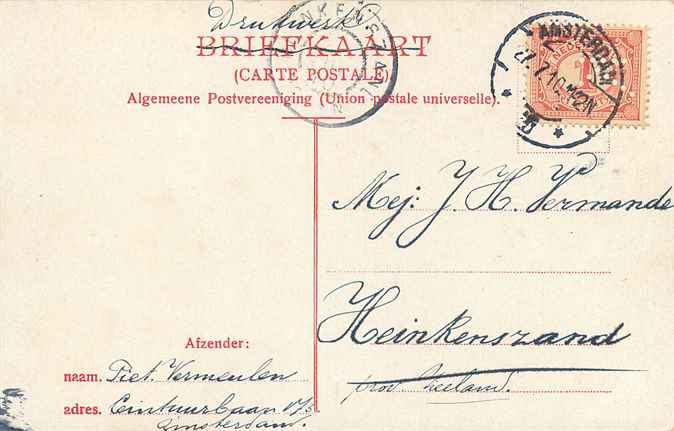 Drukwerk
BRIEFKAART
(CARTE POSTALE)
Algemeene Postvereeniging (Union postale universelle).
AMSTERDAM
Mej: J. H. Vermande
Heinkenszand
prov. Zeeland.
Afzender:
naam. Piet Vermeulen
adres. Ceintuurbaan
Amsterdam.